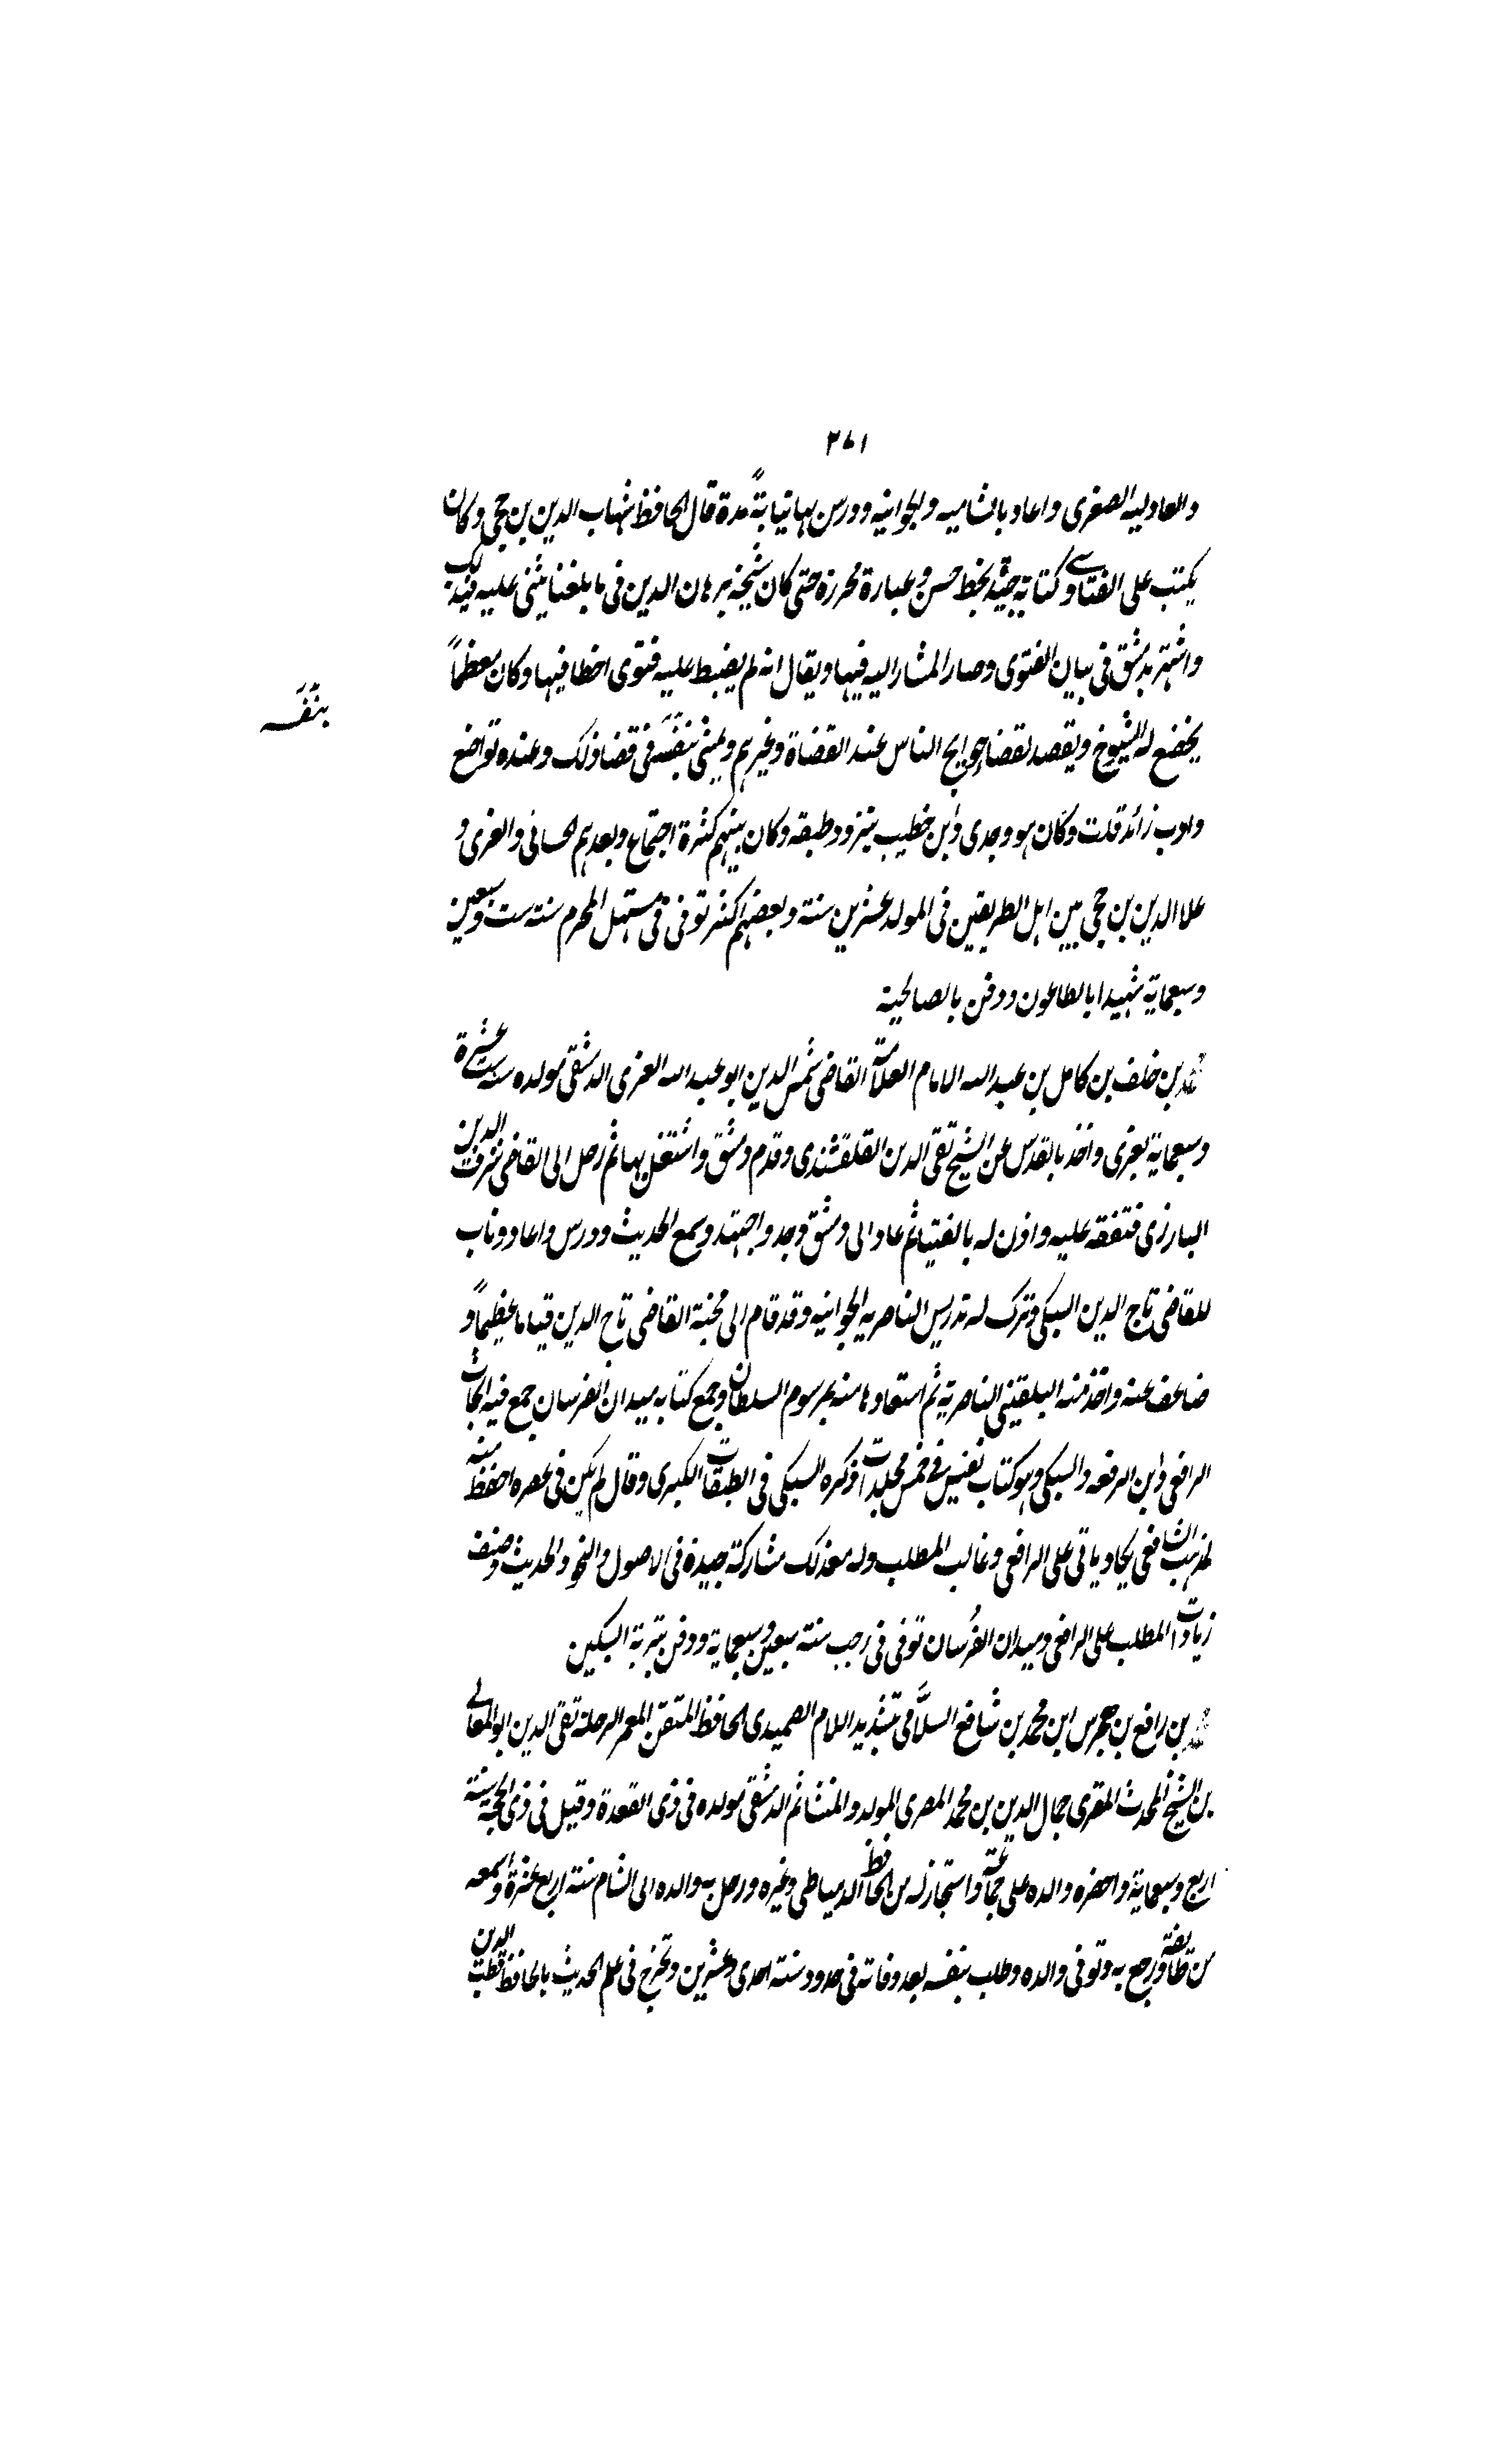 ٢٧١
والعادلية الصغرى واعاد بالشاميه والجوانيه ودرس بها نيابةً مدة قال الحافظ شهاب الدين بن حجى وكان
يكتب على الفتاوے كتابة جيدة بخط حسن وعبارة محررة حتى كان شيخه برهان الدين فى ما بلغنا يثنى عليه فى ذلك
واشتهر بدمشق فى بيان الفتوى وصار المشار اليه فيها ويقال انه لم يضبط عليه فتوى اخطا فيها وكان معظماً
يخضع له الشيوخ ويقصد لقضا حوايج الناس عند القضاة وغيرهم ويمشى بنفسه فى قضا ذلك وعنده تواضع
بنفسه
وادب زائد قلت وكان هو وجدى وابن خطيب يبرود طبقه وكان بينهم كثرة اجتماع وبعدهم الحسانى والغزى و
علا الدين بن حجى بين اهل الطريقين فى المولد عشرين سنة وبعضهم اكثر توفى فى مستهل المحرم سنة ست وسبعين
وسبعماية شهيدا بالطاعون ودفن بالصالحية
محمد بن خلف بن كامل بن عبد الله الامام العلامة القاضى شمس الدين ابو عبد الله الغزى الدمشقى مولده سنة ست عشرة
وسبعماية بغزى واخذ بالقدس عن الشيخ تقى الدين القلقشندى وقدم دمشق واشتغل بها ثم رحل الى القاضى شرف الدين
البارزى فتفقه عليه واذن له بالفتيا ثم عاد الى دمشق وجد واجتهد وسمع الحديث ودرس واعاد وناب
للقاضى تاج الدين السبكى وترك له تدريس الناصريه الجوانيه وقد قام الى محنة القاضى تاج الدين قياما عظيماً و
ضاعف عنه واخذ منه البلقينى الناصرية ثم استعادها منه بمرسوم السلطان وجمع كتابه ميدان الفرسان جمع فيه ابحاث
الرافعى وابن الرفعه والسبكى وهو كتاب نفيس فے خمس مجلدات وذكره السبكى فى الطبقات الكبرى وقال لم يكن فى عصره احفظ منه
لمذهب الشافعى يكاد ياتى على الرافعى وغالب المطلب وله مع ذلك مشاركة جيدة فى الاصول والنحو والحديث وصنف
زيادات المطلب على الرافعى وميدان الفرُسان توفى فى رجب سنة سبعين وسبعماية ودفن بتربة السبكين
محمد بن رافع بن هجرس ابن محمد بن شافع السلَّامى بتشديد اللام الصميدى الحافظ المتقن المعمر الرحلة تقى الدين ابو المعالے
بن الشيخ المحدث المقرى جمال الدين بن محمد المصرى المولد والمنشا ثم الدمشقى مولده فى ذى القعدة وقيل فى ذى الحجة سنة
اربع وسبعماية واحضره والده على جماعة واستجاز له من الحافظ الدمياطى وغيره ورحل به والده الى الشام سنة اربع عشرة واسمعه
من طائفة ورجع به وتوفى والده وطلب بنفسه بعد وفاته فى حدود سنة احدى وعشرين وتخرج فى علم الحديث بالحافظ قطب الدين